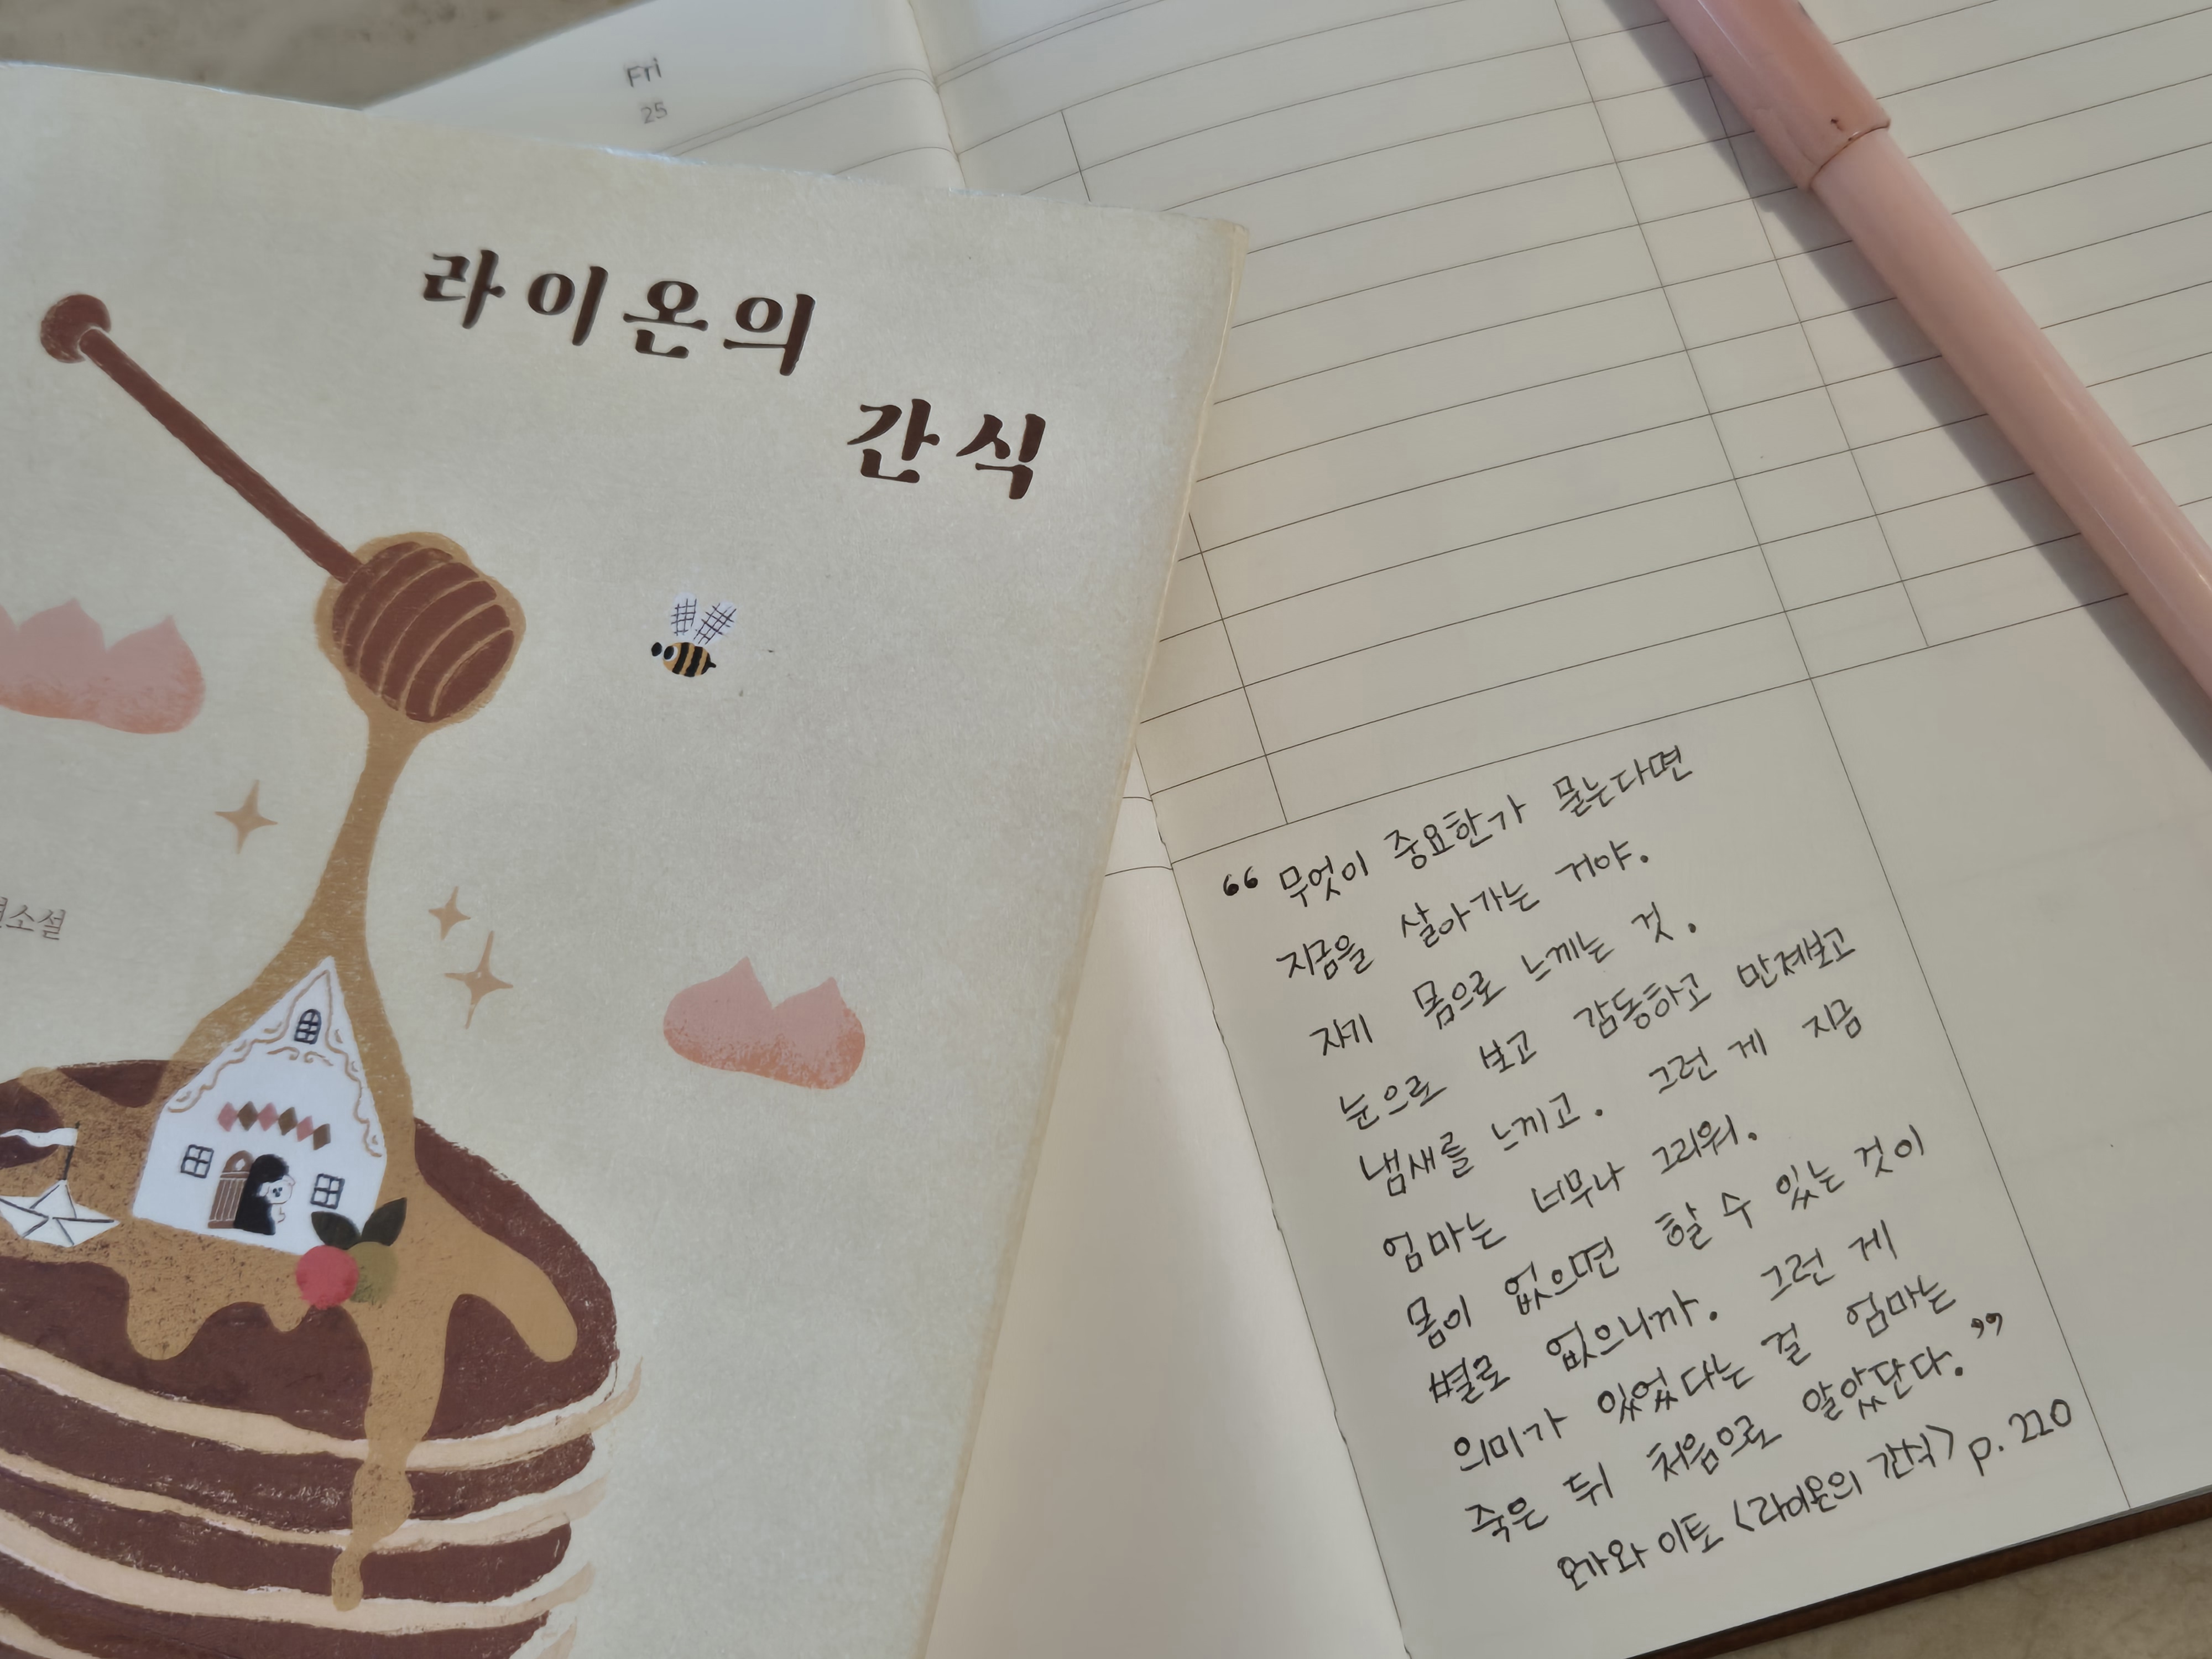 Fri
25
라이온의
간식
소설
“ 무엇이 중요한가 묻는다면
지금을 살아가는 거야.
자기 몸으로 느께는 것.
눈으로 보고 감동하고 만져보고
냄새를 느끼고. 그런 게 지금
엄마는 너무나 그리워.
몸이 없으면 할 수 있는 것이
별로 없으니까. 그런 게
의미가 있었다는 걸 엄마는
죽은 뒤 처음으로 알았단다. ”
오가와 이토 <라이온의 간식> p. 220